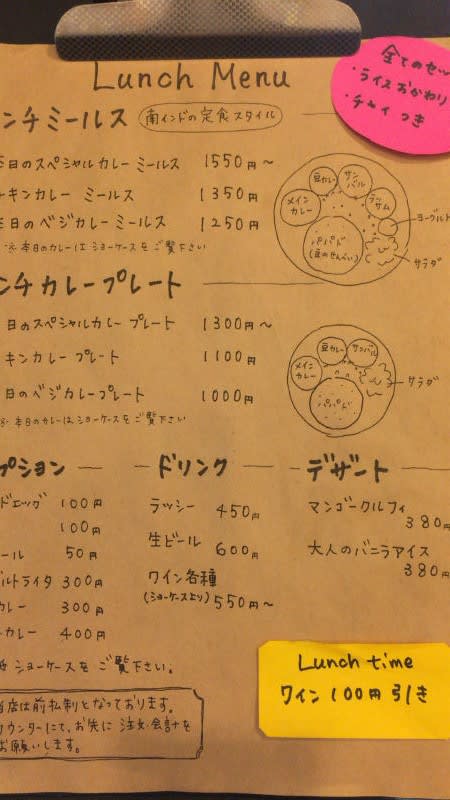 Lunch Menu
全てのセッ
・ライスおかわり
・チャイ つき
ンチミールス 南インドの定食スタイル
日のスペシャルカレー ミールス 1550円〜
チキンカレー ミールス 1350
本日のベジカレー ミールス 1250円
※本日のカレーはショーケースをご覧下さい
豆カレー
サンバル
メインカレー
ラッサム
ヨーグルト
パパド
(豆のせんべい)
サラダ
ンチカレープレート
日のスペシャルカレー プレート 1300円〜
キンカレー プレート 1100
日のベジカレープレート 1000円
※ 本日のカレーは、ショーケースをご覧下さい
豆カレー
サンバル
メインカレー
サラダ
パパド
プション
ドエッグ 100円
100円
ール 50円
ルトライタ 300円
カレー 300円
カレー 400円
ショーケースをご覧下さい。
ドリンク
ラッシー 450円
生ビール 600円
ワイン各種
(ショーケースより) 550円〜
デザート
マンゴークルフィ
380円
大人のバニラアイス
380円
Lunch time
ワイン 100円 引き
当店は前払制となっております。
カウンターにて、お先に 注文・会計を
お願いします。